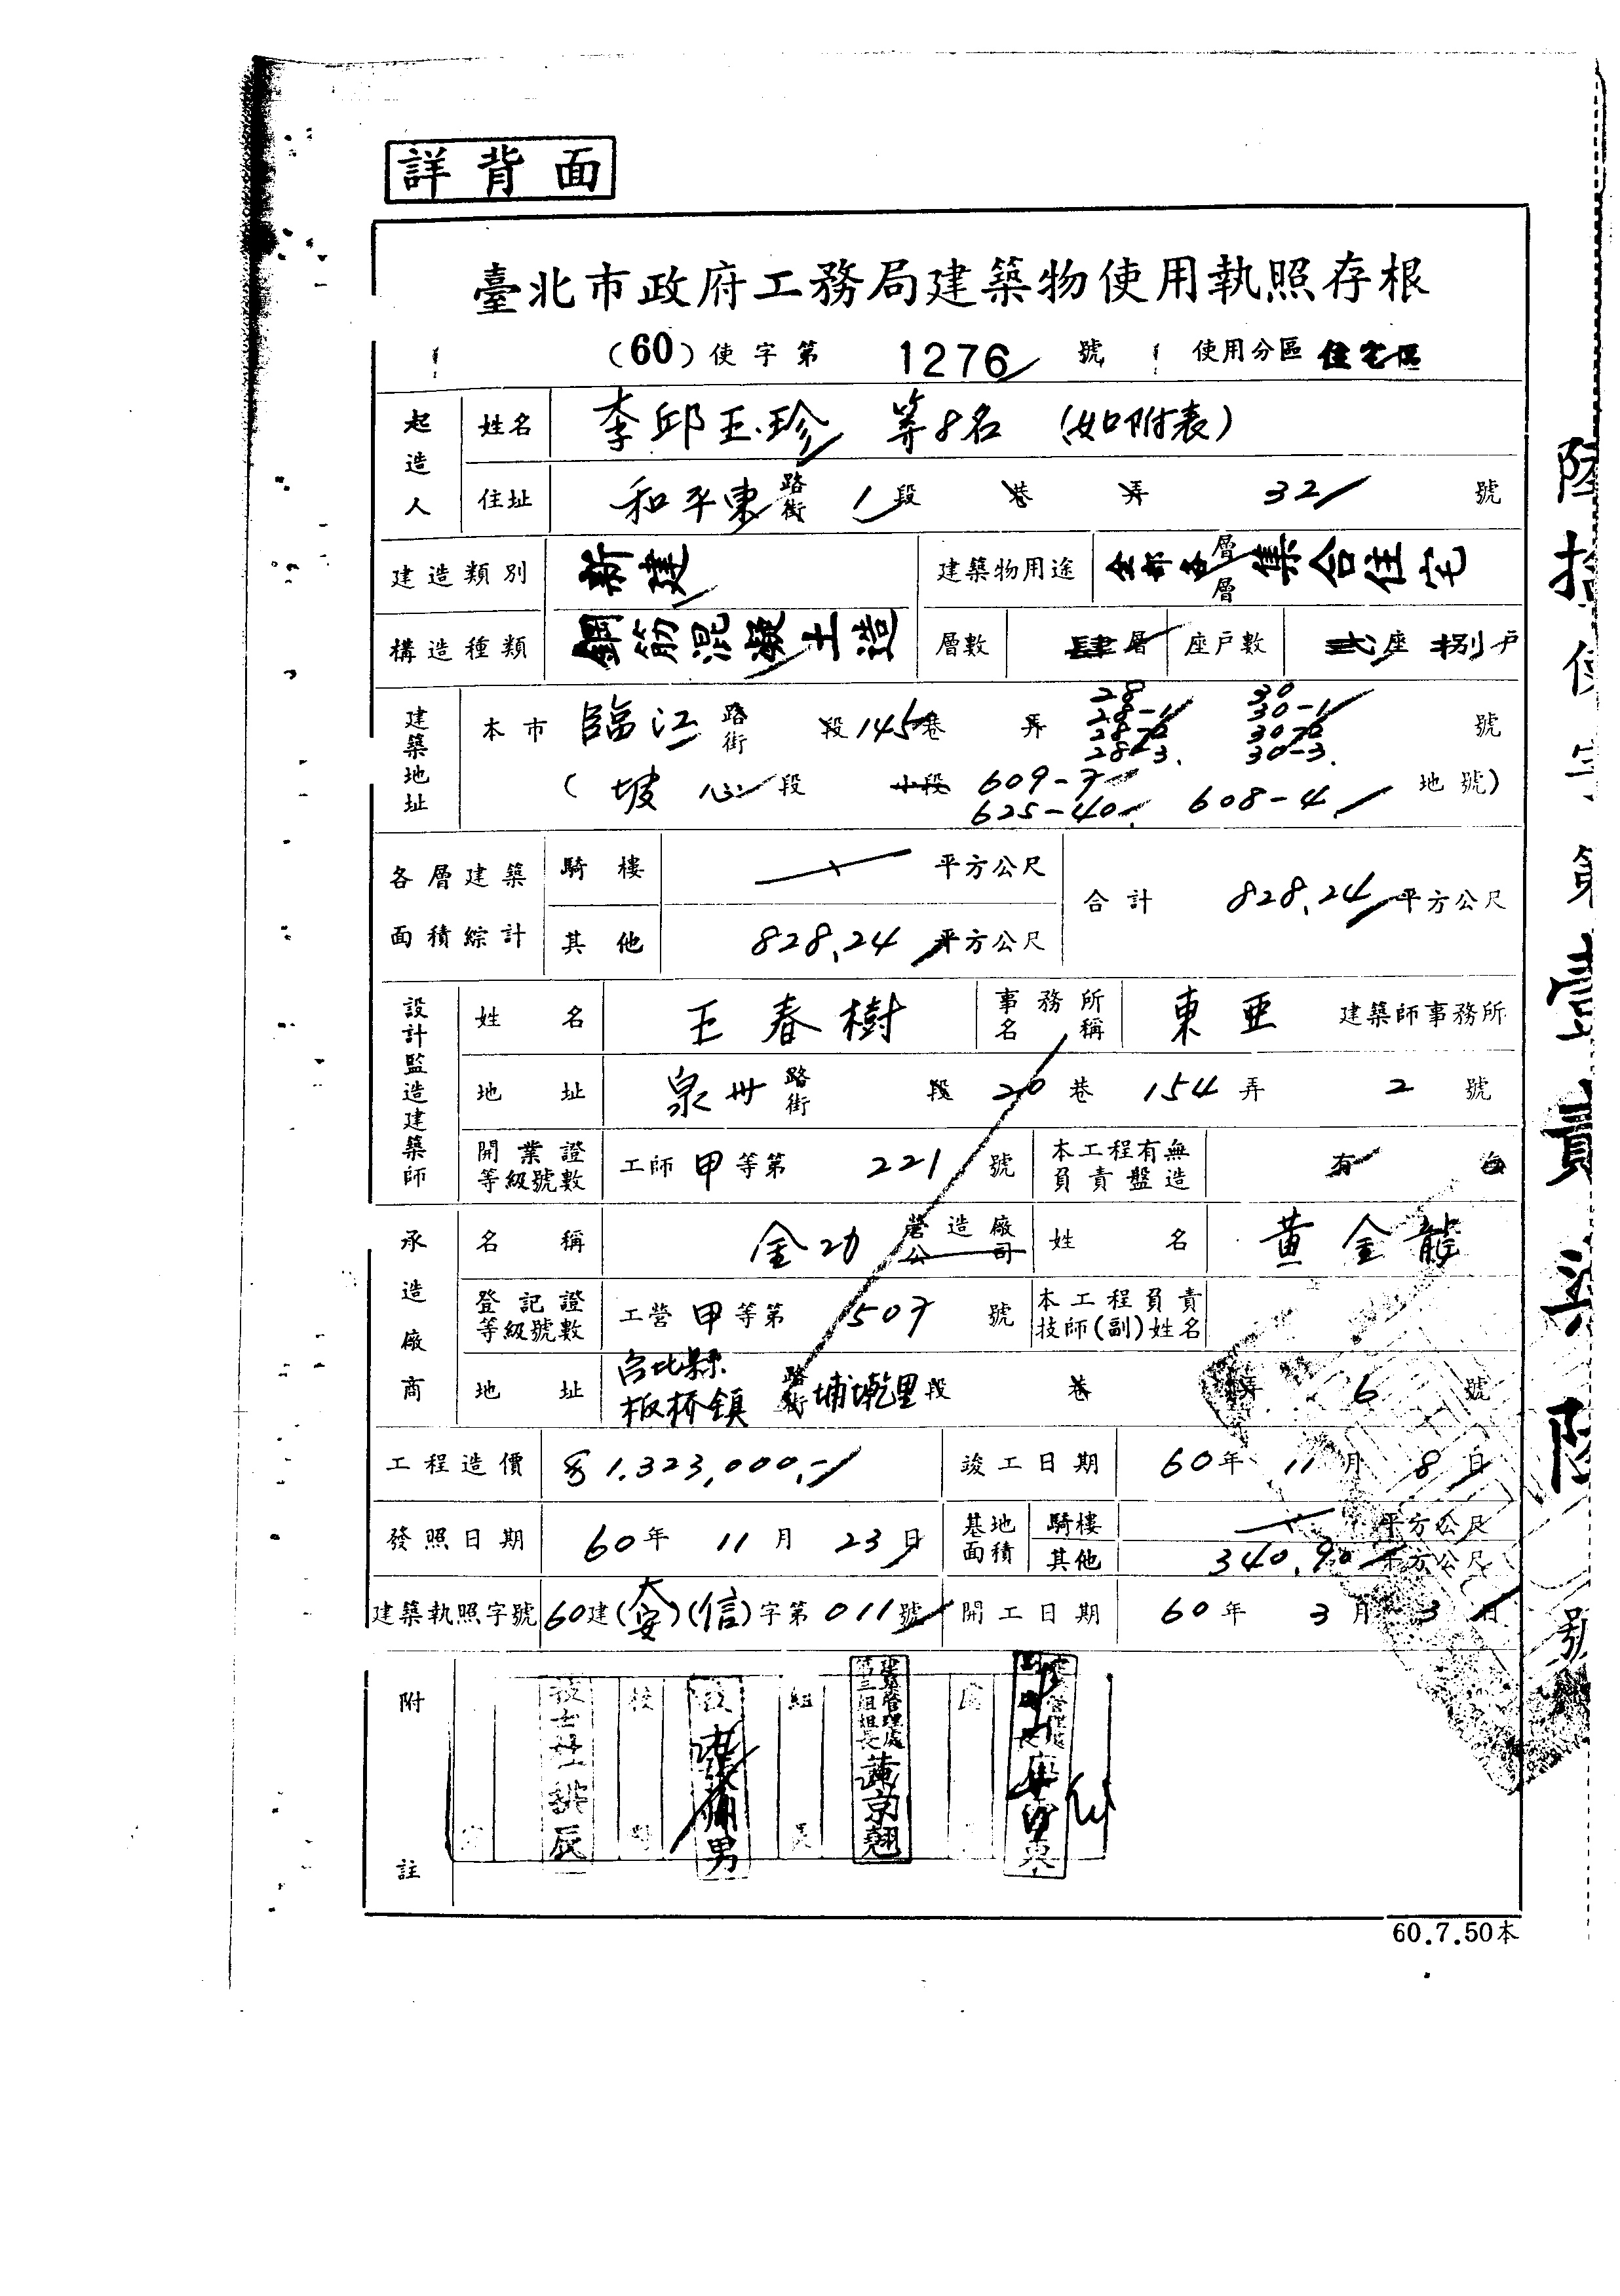 詳背面
臺北市政府工務局建築物使用執照存根
(60)使字第 1276 號 使用分區 住宅區
起造人 姓名 李邱玉珍 等8名 (如附表)
住址 和平東 路街 1段 巷 弄 32 號
建造類別 新建 建築物用途 全部各層 層 集合住宅
構造種類 鋼筋混凝土造 層數 肆層 座戶數 貳座 捌戶
建築地址 本市 臨江 路街 段 145巷 弄 28 28-1 28-2 28-3 30 30-1 30-2 30-3 號
(坡心段 小段 609-7 625-40 608-4 地號)
各層建築面積綜計 騎樓 平方公尺 合計 828.24 平方公尺
其他 828.24 平方公尺
設計監造建築師 姓名 王春樹 事務所名稱 東亜 建築師事務所
地址 泉州 路街 段 20巷 154弄 2號
開業證等級號數 工師甲等第 221 號 本工程有無負責盤造 有
承造廠商 名稱 金功 營造廠公司 姓名 黃金龍
登記證等級號數 工營甲等第 1507 號 本工程負責技師(副)姓名
地址 台北縣板桥鎮 路街 埔墘里 段 巷 弄 6 號
工程造價 1,323,000.- 竣工日期 60年 11月 8日
發照日期 60年 11月 23日 基地面積 騎樓 平方公尺
其他 340.90 平方公尺
建築執照字號 60建(大安)(信)字第011號 開工日期 60年 3月 3日
附註
建築管理處第三組組長 黃京翹
60.7.50本